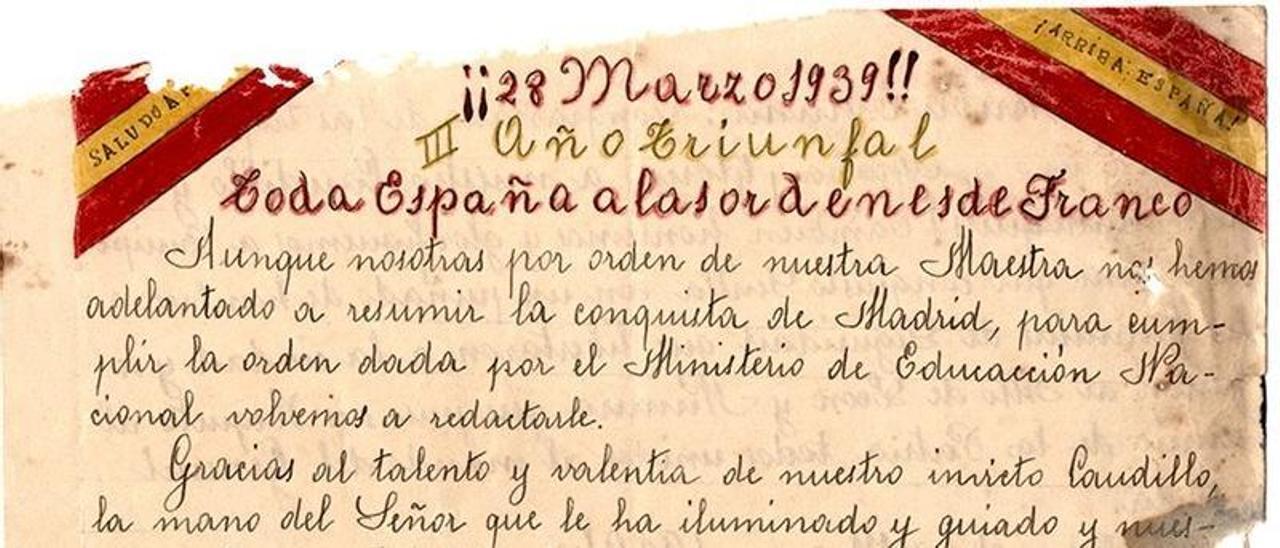 SALUDO A F
¡ARRIBA ESPAÑA!
¡¡28 Marzo 1939!!
III Año Triunfal
Toda España a las ordenes de Franco
Aunque nosotras por orden de nuestra Maestra nos hemos
adelantado a resumir la conquista de Madrid, para cum-
plir la orden dada por el Ministerio de Educacción Na-
cional volvemos a redactarle.
Gracias al talento y valentia de nuestro invicto Caudillo,
la mano del Señor que le ha iluminado y guiado y nues-